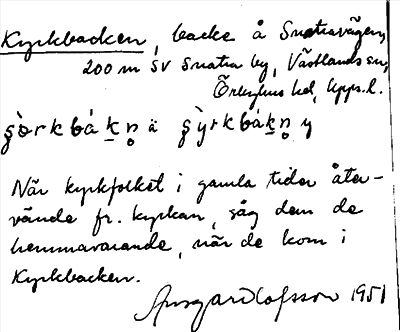 Kyrkbacken, backe å Snatravägen,
200 m SV Snatra by, Västlands sn,
Örbyhus hd, Upps. l.
ʃò̀rkbákn̥ ä ʃỳrkbákn̥ y
När kyrkfolket i gamla tider åter-
vände fr. kyrkan, såg dem de
hemmavarande, när de kom i
Kyrkbacken.
Ansgar Olofsson 1951